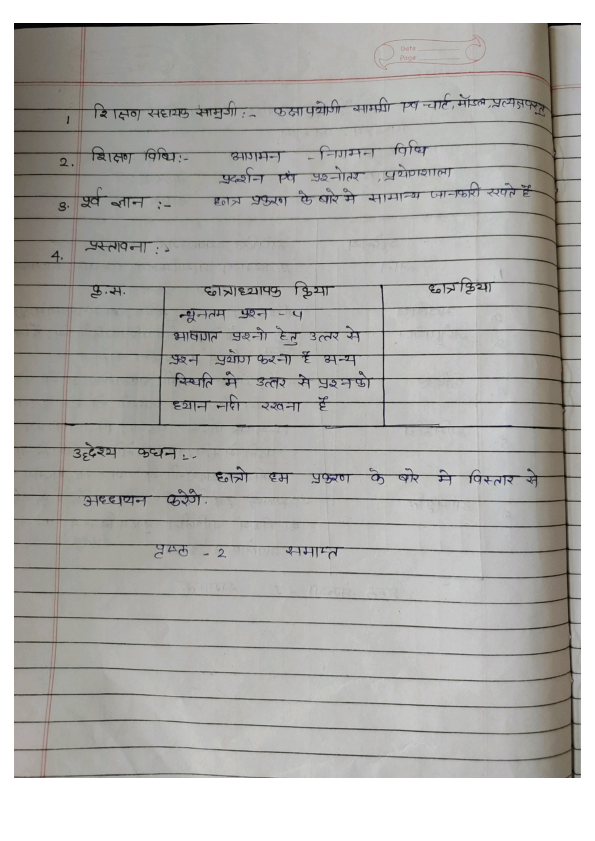 Date
Page
1 शिक्षण सहायक सामुग्री :- कक्षापयोगी सामग्री एवं चार्ट, मॉडल, प्रत्यक्ष वस्तु
2. शिक्षण विधि :- आगमन - निगमन विधि
प्रदर्शन एवं प्रश्नोतर, प्रयोगशाला
3. पूर्व ज्ञान :- छात्र प्रकरण के बारे मे सामान्य जानकारी रखते हैं
4. प्रस्तावना :-
क्र.स. छात्राध्यापक क्रिया छात्र क्रिया
न्यूनतम प्रश्न - 5
भाषागत प्रश्नो हेतु उत्तर से
प्रश्न प्रयोग करना हैं अन्य
स्थिति मे उत्तर से प्रश्न को
ध्यान नही रखना हैं
उद्देश्य कथन :-
छात्रो हम प्रकरण के बारे मे विस्तार से
अध्धयन करेगे.
पृष्ठ - 2 समाप्त